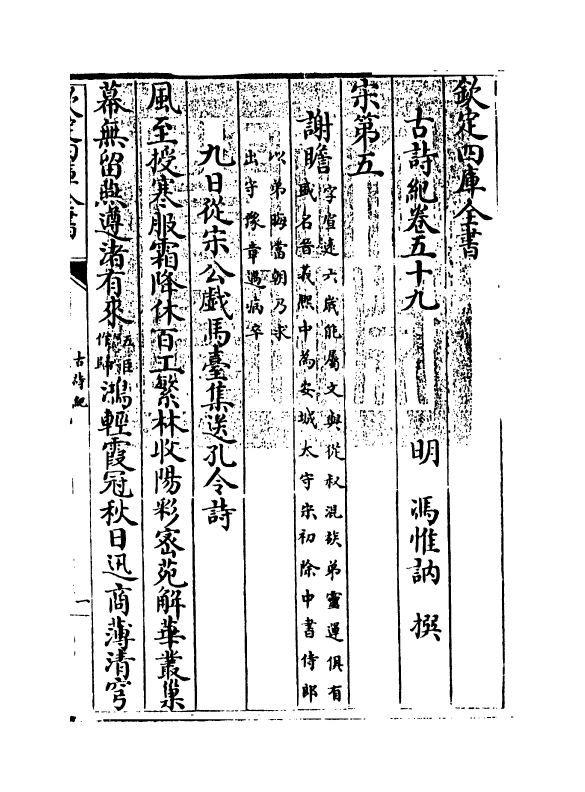 欽定四庫全書
古詩紀卷五十九 明 馮惟訥 撰
宋第五
謝瞻 字宣遠六歲能屬文與從叔混族弟靈運俱有
盛名晉義熙中為安城太守宋初除中書侍郎
以弟晦當朝乃求
出守豫章遇病卒
九日從宋公戲馬臺集送孔令詩
風至授寒服霜降休百工繁林收陽彩密苑解華叢巢
幕無留燕遵渚有來 五臣作歸 鴻輕霞冠秋日迅商薄清穹
欽定四庫全書
古詩紀
一